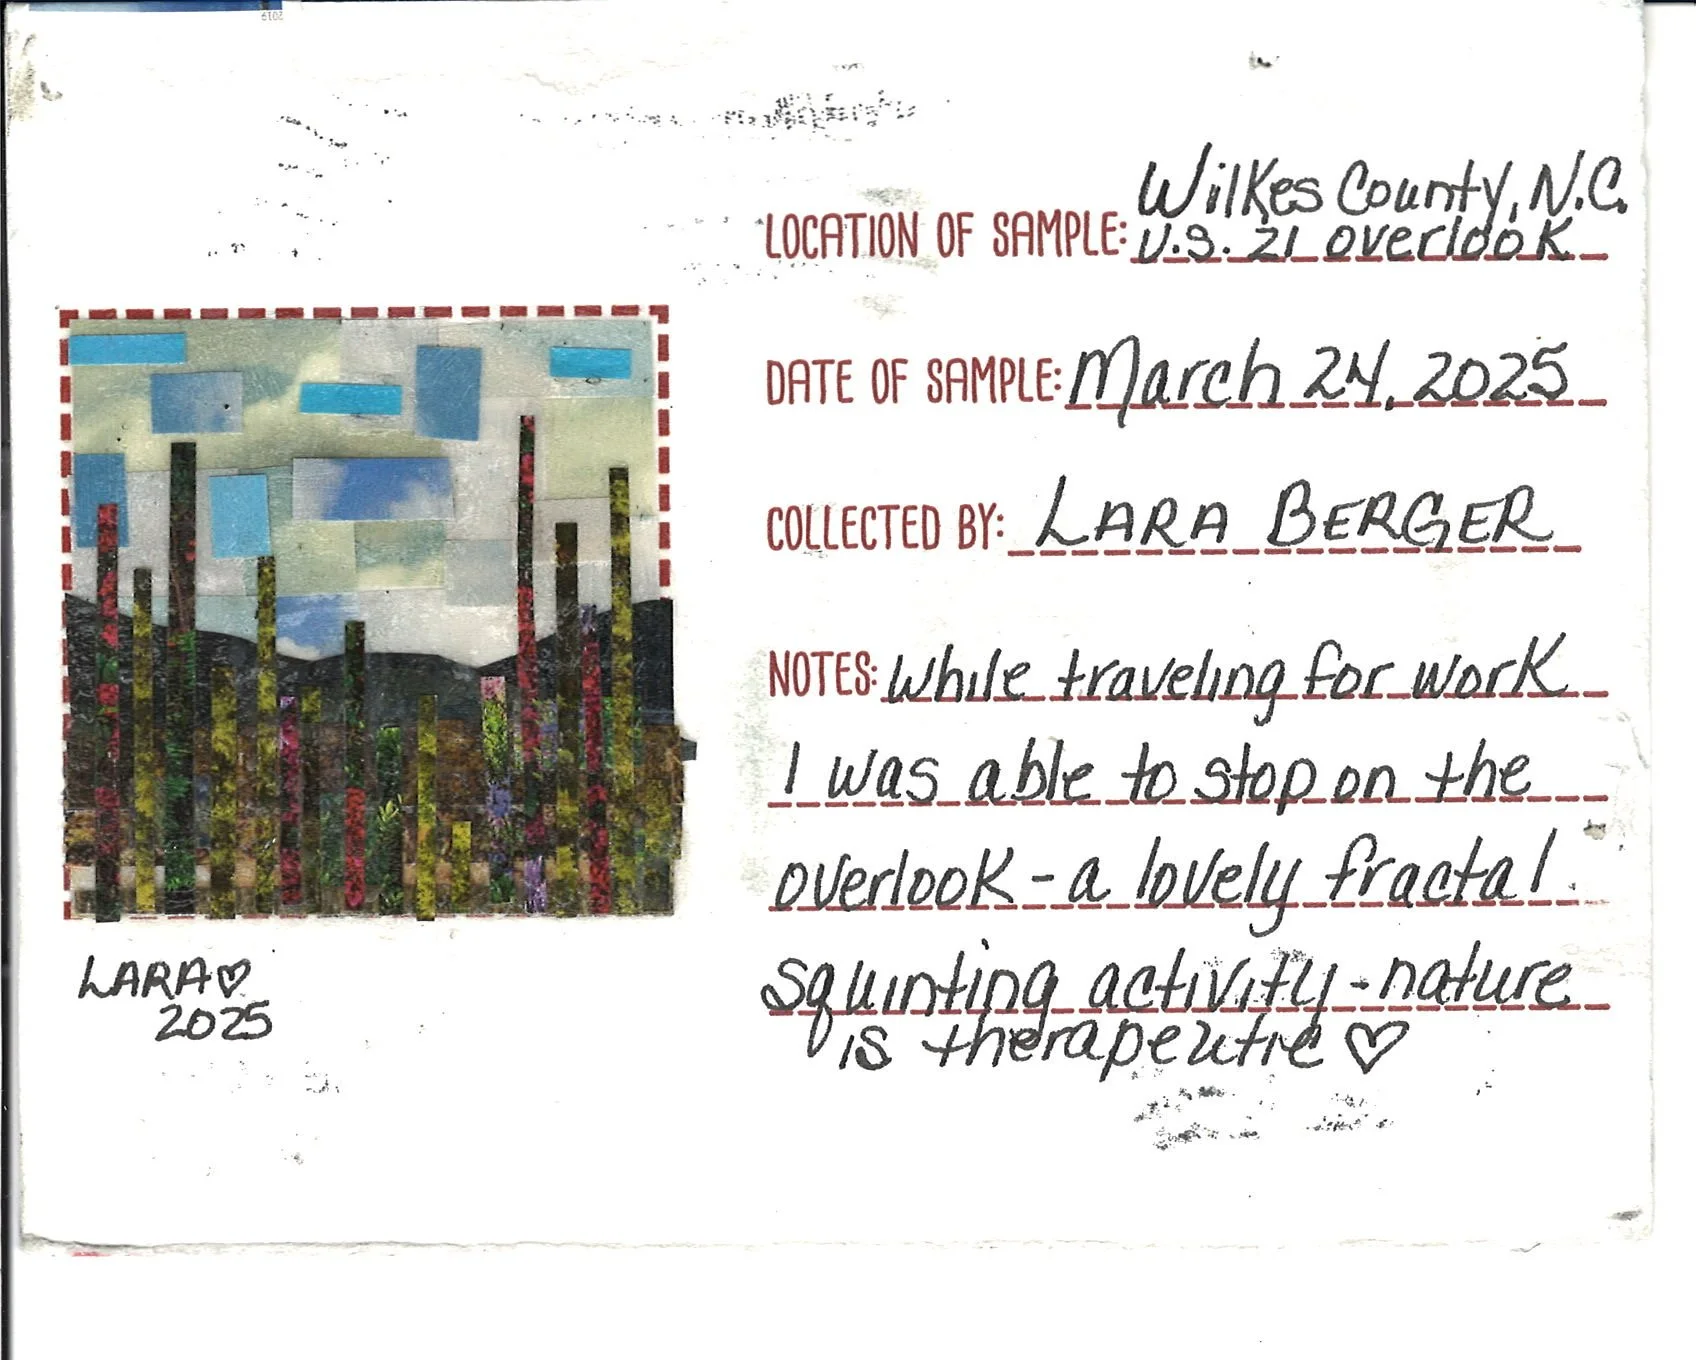 2019
LOCATION OF SAMPLE: Wilkes County, N.C.
U.S. 21 overlook
DATE OF SAMPLE: March 24, 2025
COLLECTED BY: LARA BERGER
NOTES: While traveling for work
I was able to stop on the
overlook - a lovely fractal
squinting activity - nature
is therapeutic ♡
LARA ♡
2025